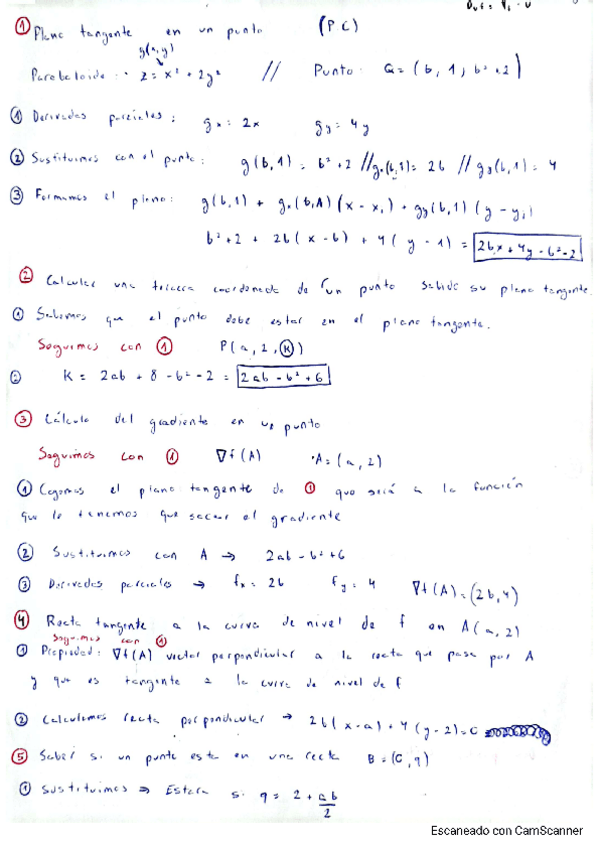 ① Plano tangente en un punto (PC)
g(x,y)
Paraboloide: z = x² + 2y² // Punto: Q = (b, 1, b²+2)
① Derivadas parciales: gx = 2x gy = 4y
② Sustituimos con el punto: g(b,1) = b²+2 // gx(b,1) = 2b // gy(b,1) = 4
③ Formamos el plano: g(b,1) + gx(b,1)(x - x₁) + gy(b,1)(y - y₁)
b²+2 + 2b(x-b) + 4(y-1) = 2bx+4y-b²-2
② Calcular una tercera coordenada de un punto sabida su plano tangente.
① Sabemos que el punto debe estar en el plano tangente.
Seguimos con ① P(a, 2, K)
② K = 2ab + 8 - b² - 2 = 2ab - b² + 6
③ Cálculo del gradiente en un punto
Seguimos con ① ∇f(A) A = (a, 2)
① Cogemos el plano tangente de ① que será a la función
que le tenemos que sacar el gradiente
② Sustituimos con A → 2ab - b² + 6
③ Derivadas parciales → fx = 2b fy = 4 ∇f(A) = (2b, 4)
④ Recta tangente a la curva de nivel de f en A(a, 2)
Seguimos con ①
① Propiedad: ∇f(A) vector perpendicular a la recta que pasa por A
y que es tangente a la curva de nivel de f
② Calculamos recta perpendicular → 2b(x-a) + 4(y-2) = C
⑤ Saber si un punto esta en una recta B = (C, q)
① Sustituimos → Estara si q = 2 + ab/2
Escaneado con CamScanner